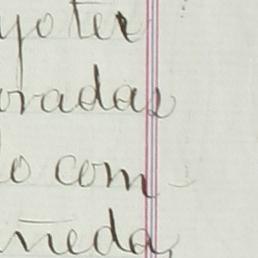 yo ter
oradas
lo com
ñeda,